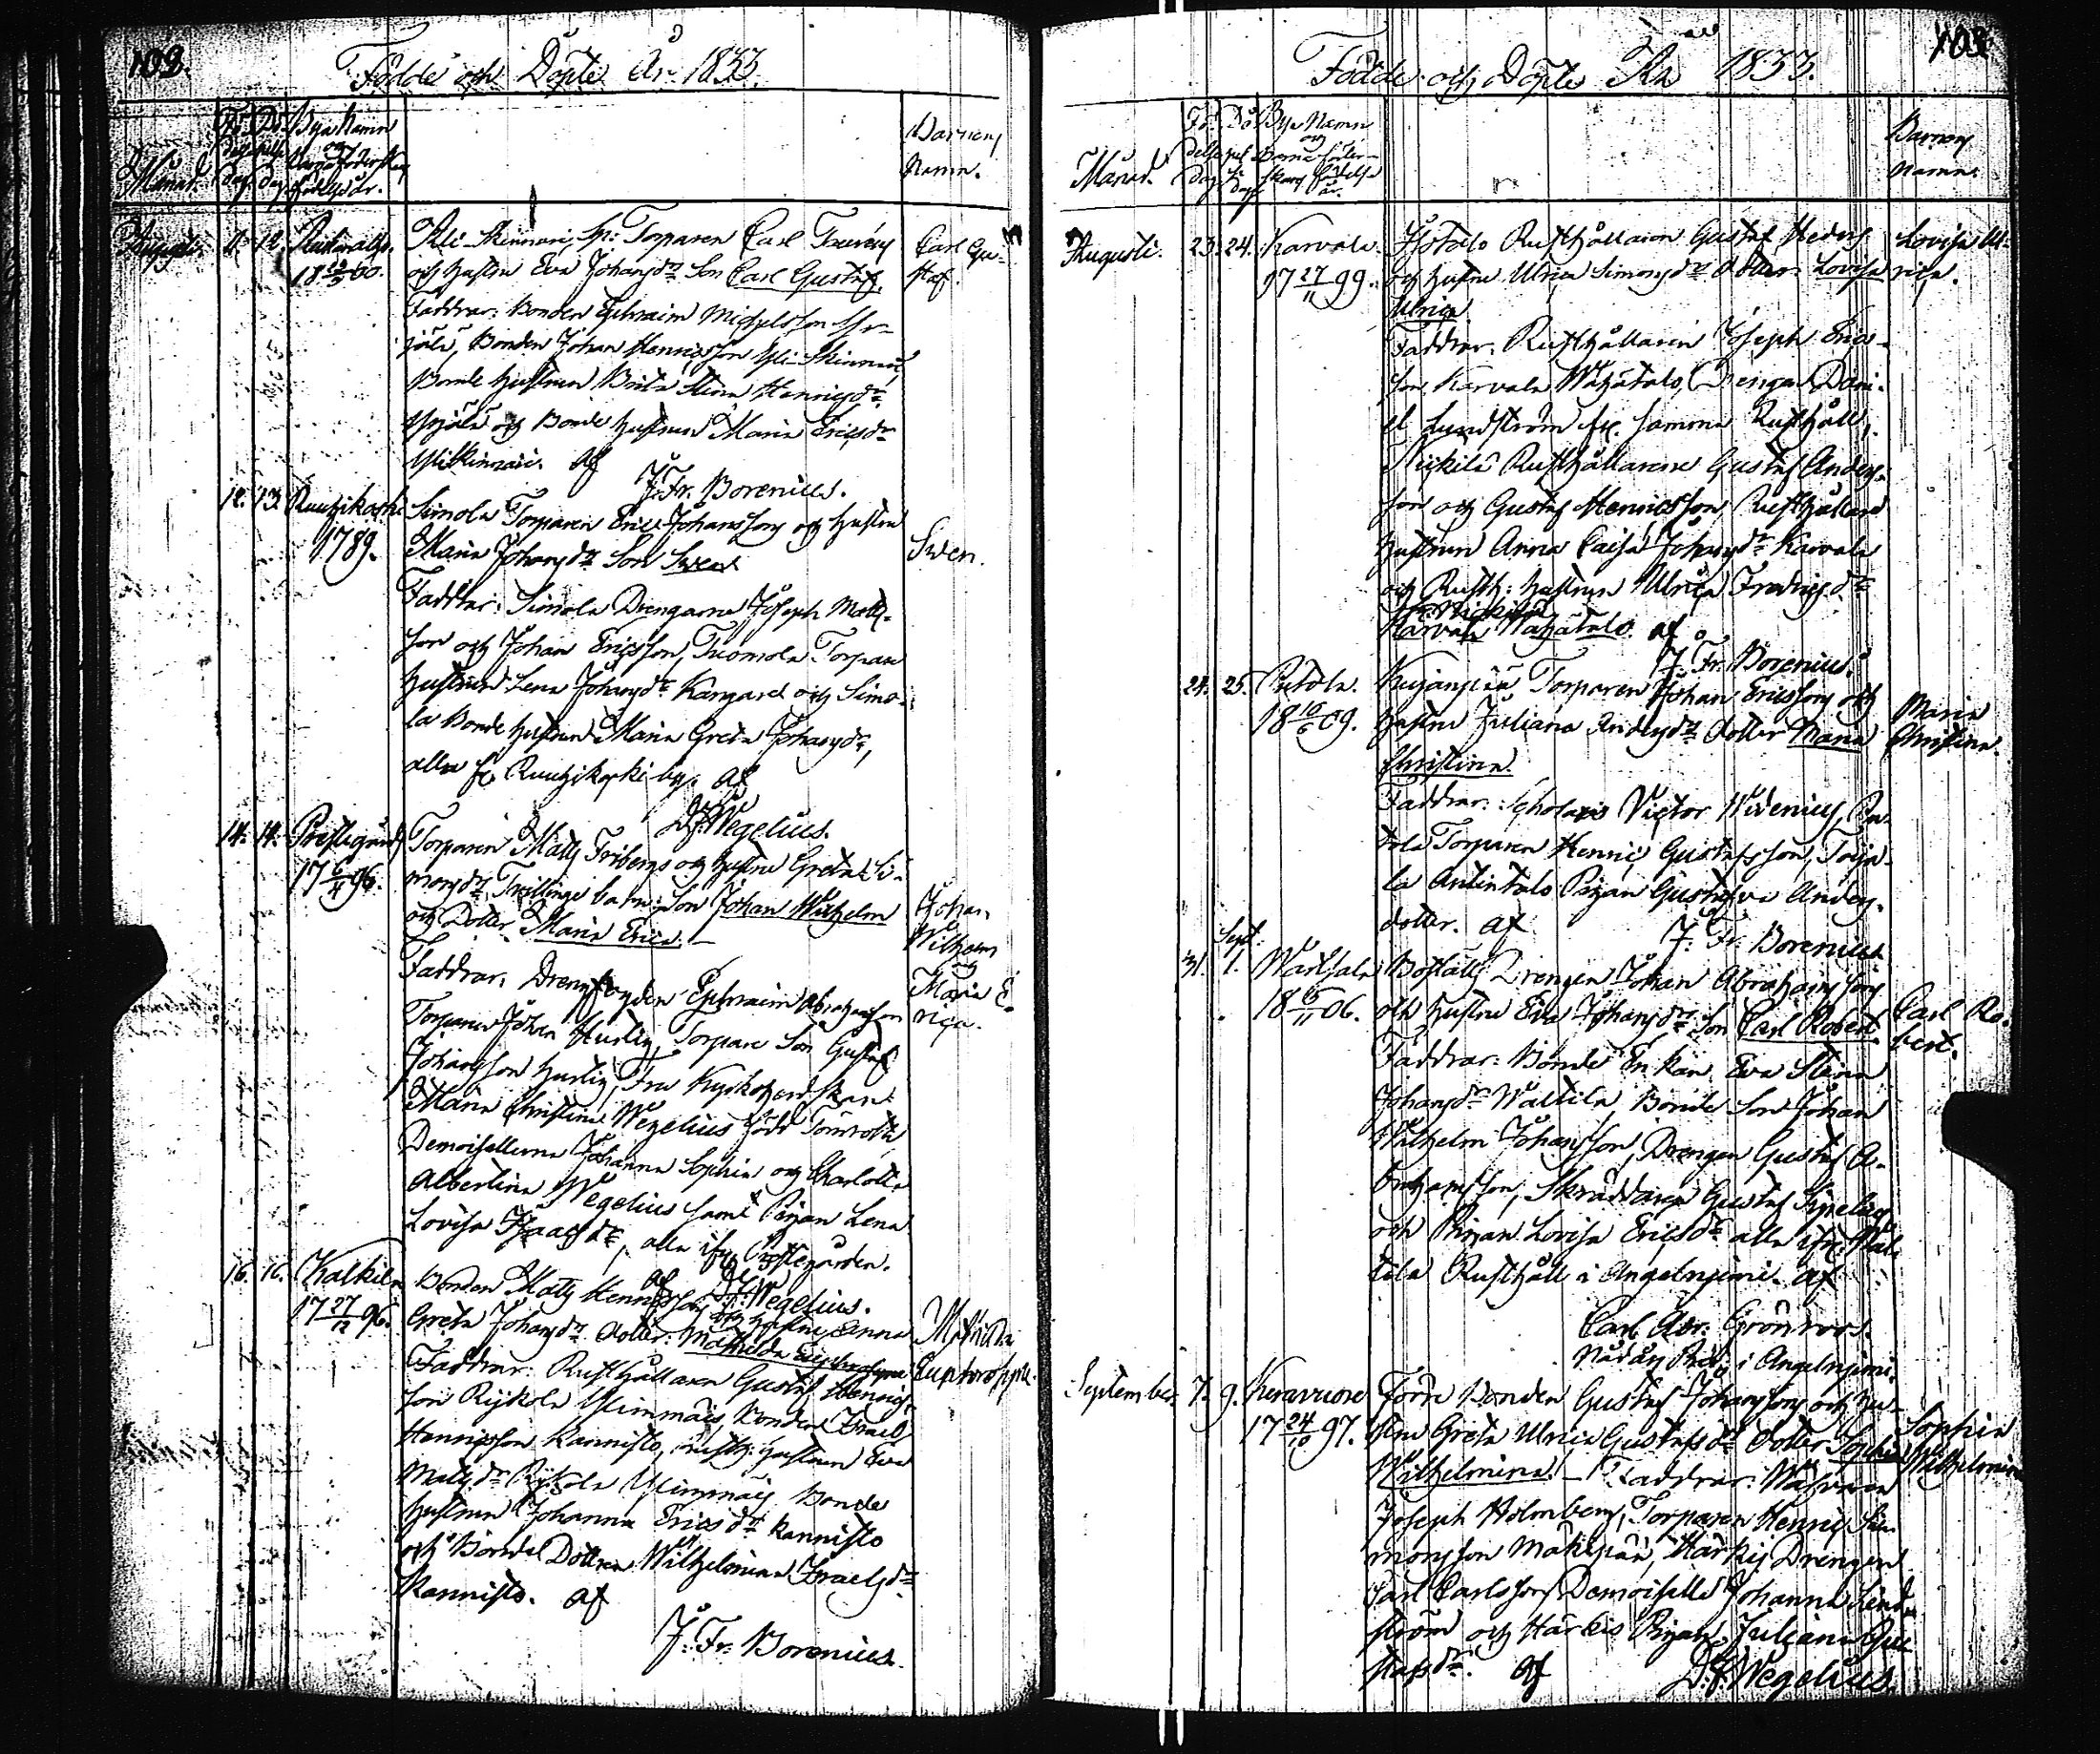 102.
Födde och Döpte År 1833.
Månad.
Fö- delse dag.
Dö- pelse dag.
Bya Namn och Barnaföderskans födelseår.
Barnens Namn.
Augusti 11. 12.
18 60.
Torparen Carl
och hustru Eva Johansdr Son Carl Gustaf.
Carl Gu-
staf.
Faddrar: Bonden Ephraim Michelsson
Bonden Johan Henricsson
Bonde hustrun Brita Stina Henricsdr
och Bonde hustrun Maria Ericsdr
af
J. Fr. Borenius.
12. 13. Ruutzikoski
1789.
Simola Torparen Eric Johansson och hustru
Maria Johansdr Son Swen
Swen.
Faddrar: Simola Drengarne Joseph Matts-
son och Johan Ericsson, Tuomola Torpare
hustrun Lena Johansdr Kangare och Simo-
la Bonde hustrun Maria Greta Johansdr,
alla fr. Ruutzikoski by. af
D. F. Wegelius.
14. 14. Prestegård
17 6/11 96.
Torparen Matts Friberg och hustru Greta Si-
monsdr Tvillinge barn: Son Johan Wilhelm
och Dotter Maria Erica.
Johan
Wilhelm
och
Maria E-
rica.
Faddrar: Drengfogden Ephraim Abrahamsson
Torparen Johan Hurtig, Torpare Son Gustaf
Johansson Hurtig, Fru Kyrkoherdskan
Maria Christina Wegelius född Tömroth
Demoisellerna Johanna Sophia och Charlotta
Albertina Wegelius samt Pigan Lena
Lovisa Isaacsdr, alla ifr. Prestegården.
af D. F. Wegelius.
16. 16. Kalkila
17 27/12 96.
Bonden Matts Henricsson och hustru Anna
Greta Johansdr Dotter: Mathilda Euphrosyne
Mathilda
Euphrosyne.
Faddrar: Rusthållaren Gustaf Henrics-
son Rijkola Ylimmäis, Bonden Israel
Henricsson Kannisto, Rusth: hustrun Eva
Mattsdr Rijkola Ylimmäis Bonde
hustrun Johanna Ericsdr Kannisto
och Bonde Dottren Wilhelmina Israelsdr
Kannisto. af
J. Fr. Borenius.
103
Födde och Döpte År 1833.
Månad.
Fö- delse dag
Dö- pelse dag
Bya Namn och Barnaföderskans födelse år.
Barnens Namn.
Augusti. 23. 24. Karvala.
17 27/11 99.
Isotalo Rusthållaren Gustaf
och hustru Ulrica Simonsdr Dotter: Lovisa
Ulrica
Lovisa Ul-
rica.
Faddrar: Rusthållaren Joseph Erics-
son Karvala Wähätalo, Drengen Dani-
el Lundström fr. samma Rusthåll,
Rusthållarene Gustaf Anders-
son och Gustaf Henricsson, Rusthållare
hustrun Anna Caisa Johansdr Karvala
och Rusth: hustrun Ulrica Fredricsdr
Karvala Wähätalo. af
J. Fr. Borenius.
24. 25.
18 10/6 09.
Kujanpää Torparen Johan Ericsson och
hustru Juliana Andersdr Dotter Maria
Christina.
Maria
Christina.
Faddrar: Scholaris Victor Widenius,
Torparen Henric Gustafsson,
la Antintalo Pigan Gustafva Anders-
dotter. af
J. Fr. Borenius.
31. Sept. 1.
18 06.
Boställs Drengen Johan Abrahamsson
och hustru Eva Johansdr Son Carl Robert.
Carl Ro-
bert.
Faddrar: Bonde Enkan Eva Stina
Johansdr Waltila, Bonde Son Johan
Wilhelm Johansson, Drengen Gustaf A-
brahamsson, Skräddaren Gustaf
och Pigan Lovisa Ericsdr alla ifr. Wal-
tila Rusthåll i Angelniemi. af
Carl Abr. Grönroos.
Nådårs Pred. i Angelniemi.
September. 7. 9. Keravuore
17 24/10 97.
Förre Bonden Gustaf Johansson och hu-
stru Greta Ulrica Gustafsdr Dotter Sophia
Wilhelmina. Faddrar:
Sophia
Wilhelmina
Joseph Holmberg, Torparen Henric Si-
monsson Mäkipää, Härkis Drengen
Carl Carlsson, Demoiselle Johanna Lind-
ström och Härkis Pigan Juliana Gus-
tafsdr. af
D. F. Wegelius.